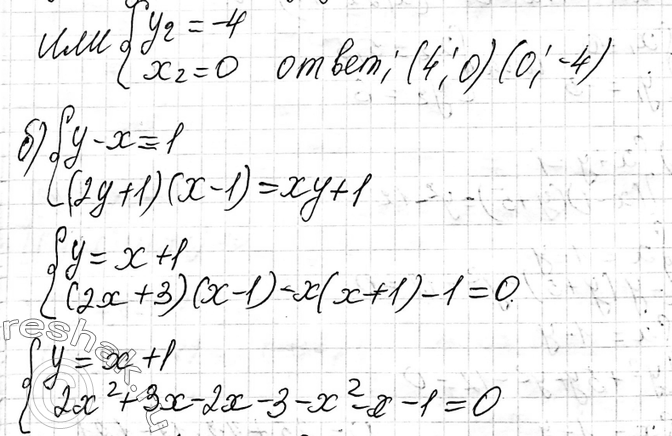 или { y₂ = -4
x₂ = 0 ответ; (4; 0) (0; -4)
б) { y - x = 1
(2y + 1)(x - 1) = xy + 1
{ y = x + 1
(2x + 3)(x - 1) - x(x + 1) - 1 = 0
{ y = x + 1
2x² + 3x - 2x - 3 - x² - x - 1 = 0
reshak.ru